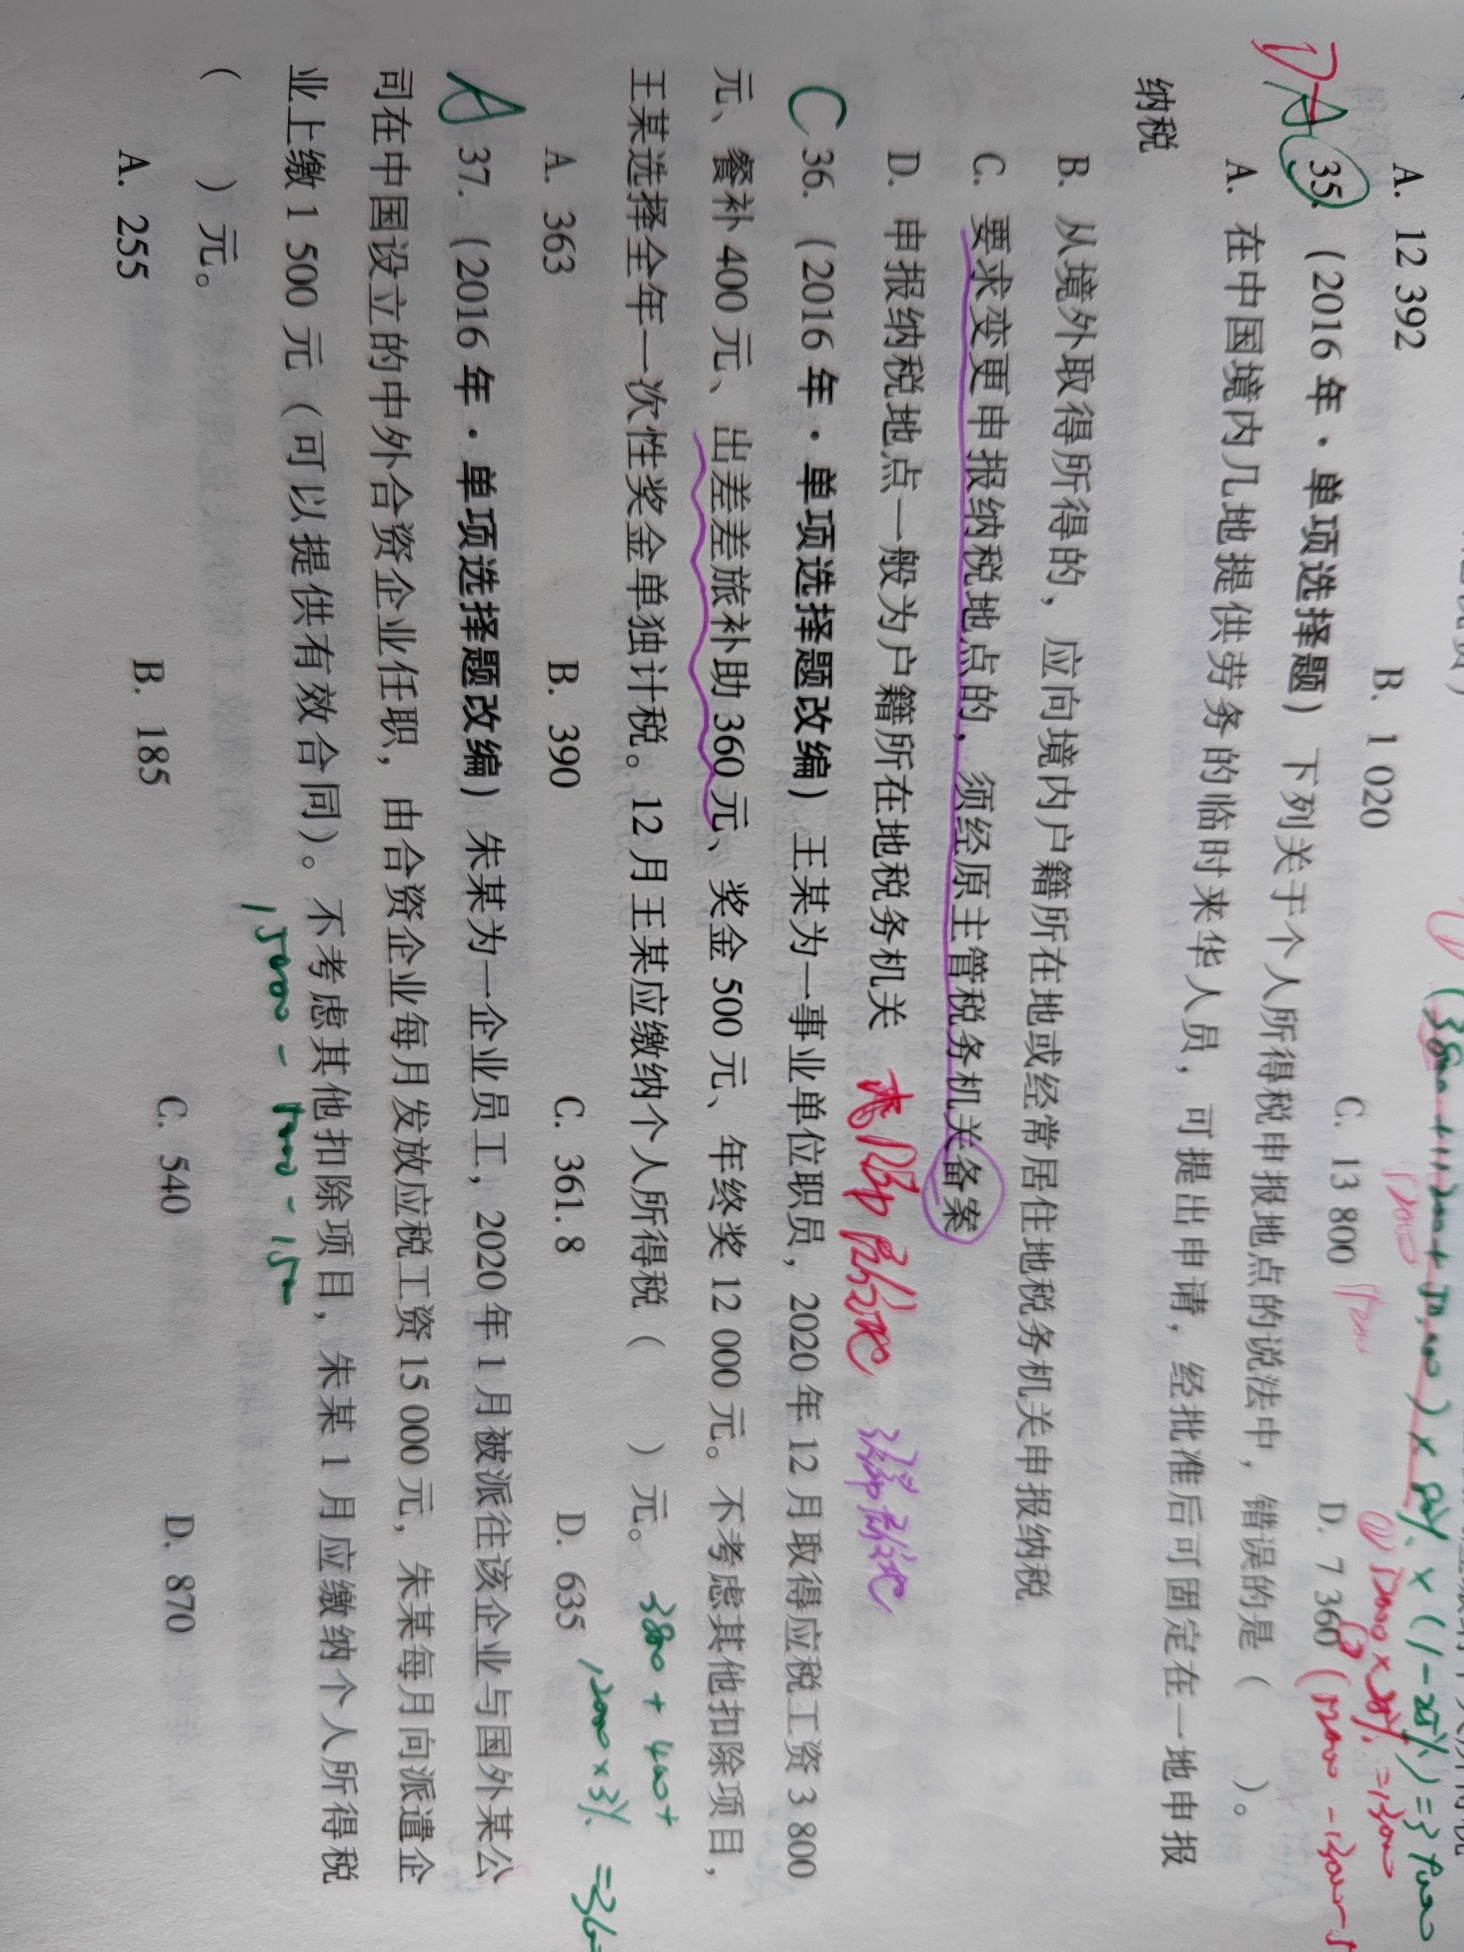 A. 12 392 B. 1 020 C. 13 800 D. 7 360
DA 35. (2016 年·单项选择题) 下列关于个人所得税申报地点的说法中，错误的是（ ）。
A. 在中国境内几地提供劳务的临时来华人员，可提出申请，经批准后可固定在一地申报
纳税
B. 从境外取得所得的，应向境内户籍所在地或经常居住地税务机关申报纳税
C. 要求变更申报纳税地点的，须经原主管税务机关备案
D. 申报纳税地点一般为户籍所在地税务机关
C 36. (2016 年·单项选择题改编) 王某为一事业单位职员，2020 年 12 月取得应税工资 3 800
元、餐补 400 元、出差差旅补助 360 元、奖金 500 元、年终奖 12 000 元。不考虑其他扣除项目，
王某选择全年一次性奖金单独计税。12 月王某应缴纳个人所得税（ ）元。
3800 + 400+
A. 363 B. 390 C. 361.8 D. 635
12000×3%
A 37. (2016 年·单项选择题改编) 朱某为一企业员工，2020 年 1 月被派往该企业与国外某公
司在中国设立的中外合资企业任职，由合资企业每月发放应税工资 15 000 元，朱某每月向派遣企
业上缴 1 500 元（可以提供有效合同）。不考虑其他扣除项目，朱某 1 月应缴纳个人所得税
（ ）元。
A. 255 B. 185 C. 540 D. 870